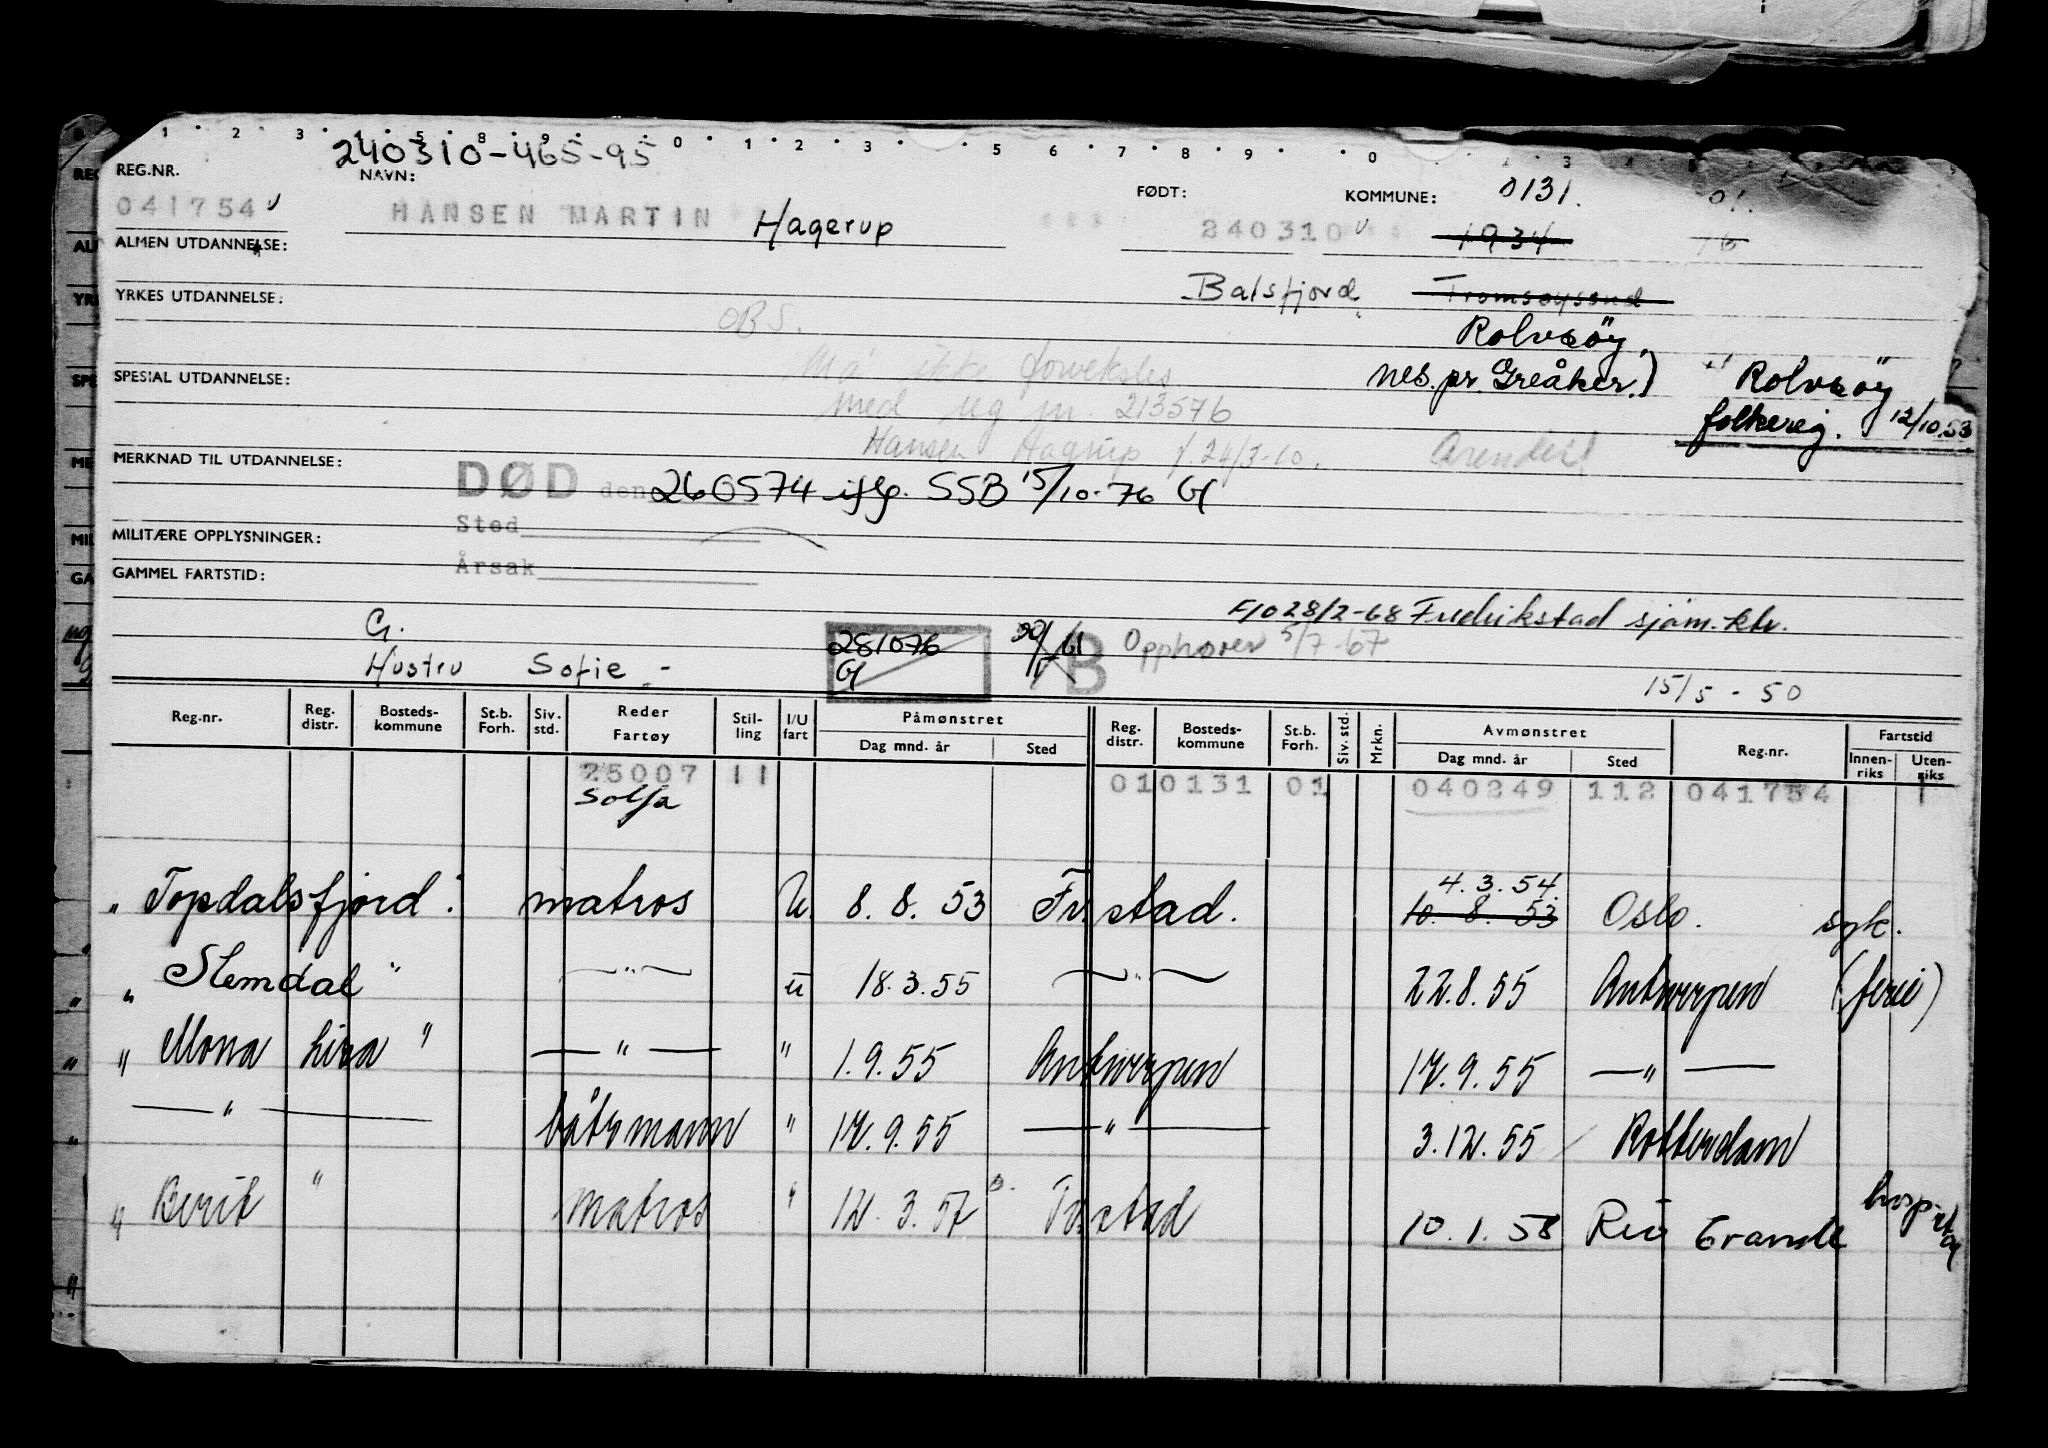 240310-465-95
REG.NR. NAVN: FØDT: KOMMUNE: 0131.
041754 HANSEN MARTIN Hagerup 240310 1934
ALMEN UTDANNELSE:
Balsfjord Tromsøysund
YRKES UTDANNELSE:
OBS. Rolvsöy.
Må ikke forveksles nes. pr. Greåker.) Rolvsöy
SPESIAL UTDANNELSE:
med reg nr. 213576 folkereg. 12/10.53
Hansen Hagrup f. 24/3-10. Arendal
MERKNAD TIL UTDANNELSE:
DØD den 260574 iflg. SSB 15/10-76 G
Sted
MILITÆRE OPPLYSNINGER:
Årsak
GAMMEL FARTSTID:
28/2-68 Fredrikstad sjøm.ktr.
G. 281076 B Opphører 5/7-67
Hustru Sofie G
15/5-50
Reg.nr. Reg. distr. Bosteds-kommune St.b. Forh. Siv. std. Reder Fartøy Stil-ling I/U fart Påmønstret Dag mnd. år Sted Reg. distr. Bosteds-kommune St.b. Forh. Siv. std. Mrkn. Avmønstret Dag mnd. år Sted Reg.nr. Fartstid Innen-riks Uten-riks
25007 11 01 0131 01 040249 112 041754 1
Solfa
4.3.54.
" Topdalsfjord" matros U 8.8.53 Fr.stad. 10.8.53 Oslo. syk.
" Stemdal" —"— u 18.3.55 —"— 22.8.55 Antwerpen (ferie)
" Mona Lisa " —"— " 1.9.55 Antwerpen 17.9.55 —"—
—"— båtsmann " 17.9.55 —"— 3.12.55 Rotterdam
" Berit " matros " 12.3.57 Fr.stad 10.1.58 Rio Grande